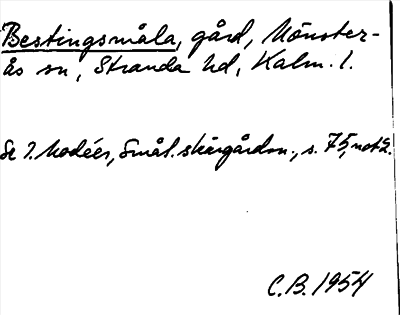 Bestingsmåla, gård, Mönster-
ås sn, Stranda hd, Kalm. l.
Se I. Modéer, Smål. skärgårdsn., s. 75, not 2.
C.B. 1954